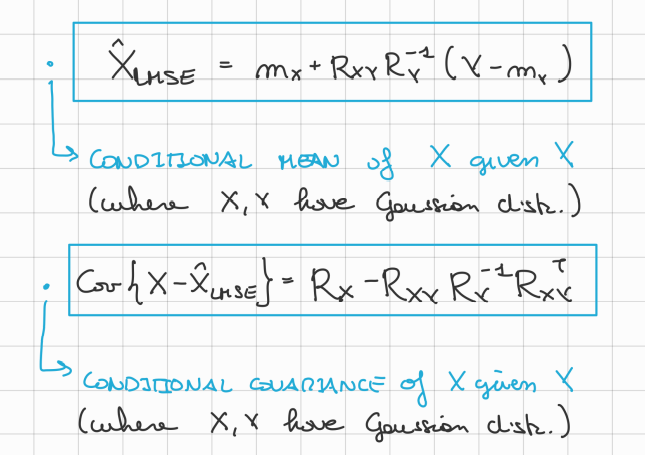 X̂_LMSE = m_x + R_XY R_Y^-1 (Y - m_Y)
CONDITIONAL MEAN of X given Y
(where X,Y have Gaussian distr.)
Cov{X - X̂_LMSE} = R_X - R_XY R_Y^-1 R_XY^T
CONDITIONAL COVARIANCE of X given Y
(where X,Y have Gaussian distr.)